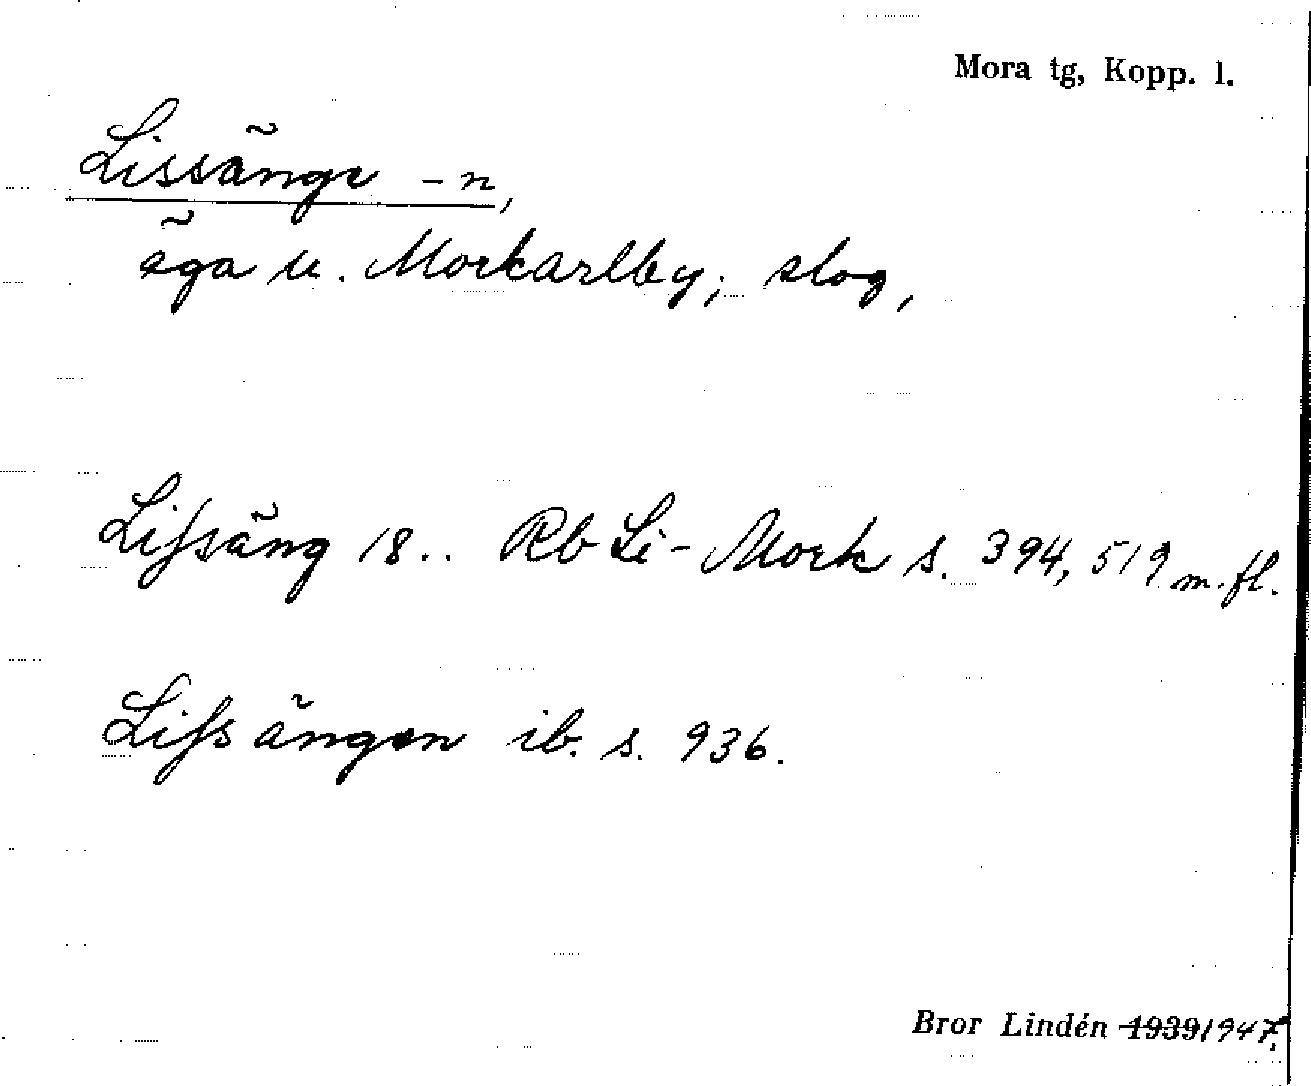 Mora tg, Kopp. l.
Lissänge -n,
äga u. Morkarlby; slog,
Lifsäng 18.. Rb Li-Mork s. 394, 519 m. fl.
Lifsängen ib. s. 936.
Bror Lindén 1939 1947.